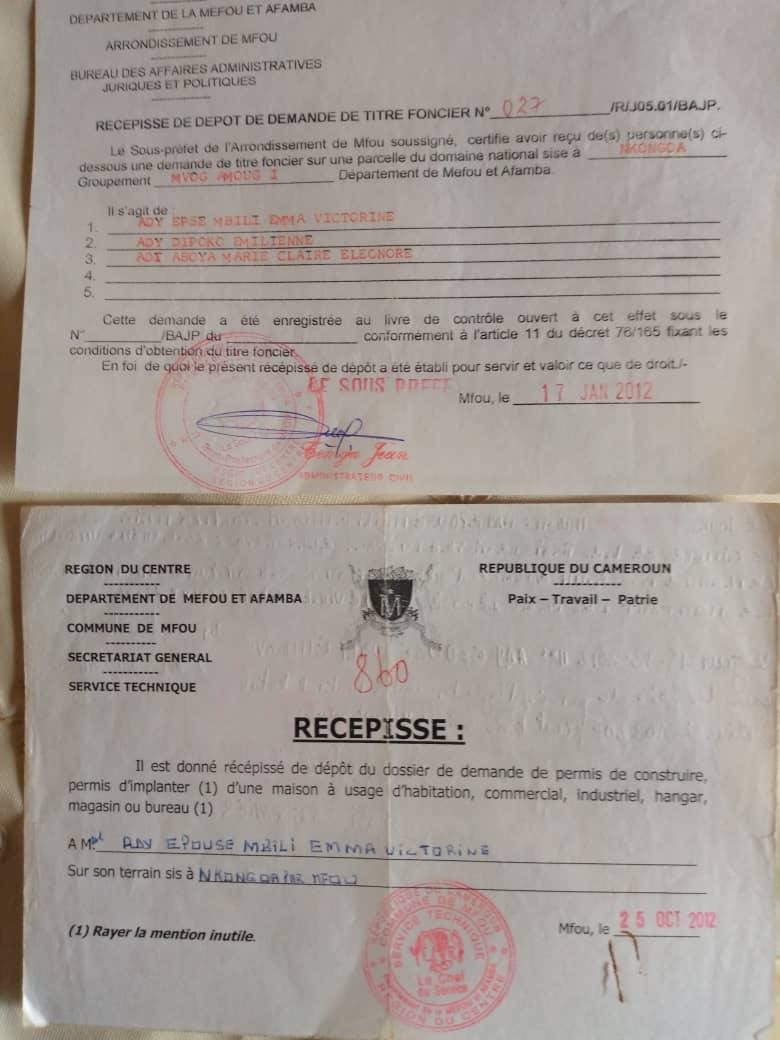 DEPARTEMENT DE LA MEFOU ET AFAMBA
ARRONDISSEMENT DE MFOU
BUREAU DES AFFAIRES ADMINISTRATIVES
JURIQUES ET POLITIQUES
RECEPISSE DE DEPOT DE DEMANDE DE TITRE FONCIER N° 027 /R/J05.01/BAJP.
Le Sous-préfet de l'Arrondissement de Mfou soussigné, certifie avoir reçu de(s) personne(s) ci-
dessous une demande de titre foncier sur une parcelle du domaine national sise à NKONGOA
Groupement MVOG AMOUG I Département de Mefou et Afamba.
Il s'agit de :
1. ADY EPSE MBILI EMMA VICTORINE
2. ADY DIPOKO EMILIENNE
3. ADY ABOYA MARIE CLAIRE ELEONORE
4.
5.
Cette demande a été enregistrée au livre de contrôle ouvert à cet effet sous le
N° /BAJP du conformément à l'article 11 du décret 76/165 fixant les
conditions d'obtention du titre foncier.
En foi de quoi le présent récépissé de dépôt a été établi pour servir et valoir ce que de droit./-
LE SOUS PREFET
Mfou, le 17 JAN 2012
Jean
ADMINISTRATEUR CIVIL
REGION DU CENTRE
DEPARTEMENT DE MEFOU ET AFAMBA
COMMUNE DE MFOU
SECRETARIAT GENERAL
SERVICE TECHNIQUE
REPUBLIQUE DU CAMEROUN
Paix – Travail – Patrie
860
RECEPISSE :
Il est donné récépissé de dépôt du dossier de demande de permis de construire,
permis d'implanter (1) d'une maison à usage d'habitation, commercial, industriel, hangar,
magasin ou bureau (1)
A M. ADY EPOUSE MBILI EMMA VICTORINE
Sur son terrain sis à NKONGOA PAR MFOU
(1) Rayer la mention inutile.
Mfou, le 25 OCT 2012
REPUBLIQUE DU CAMEROUN
COMMUNE DE MFOU
SERVICE TECHNIQUE
Le Chef
de Service
REGION DU CENTRE